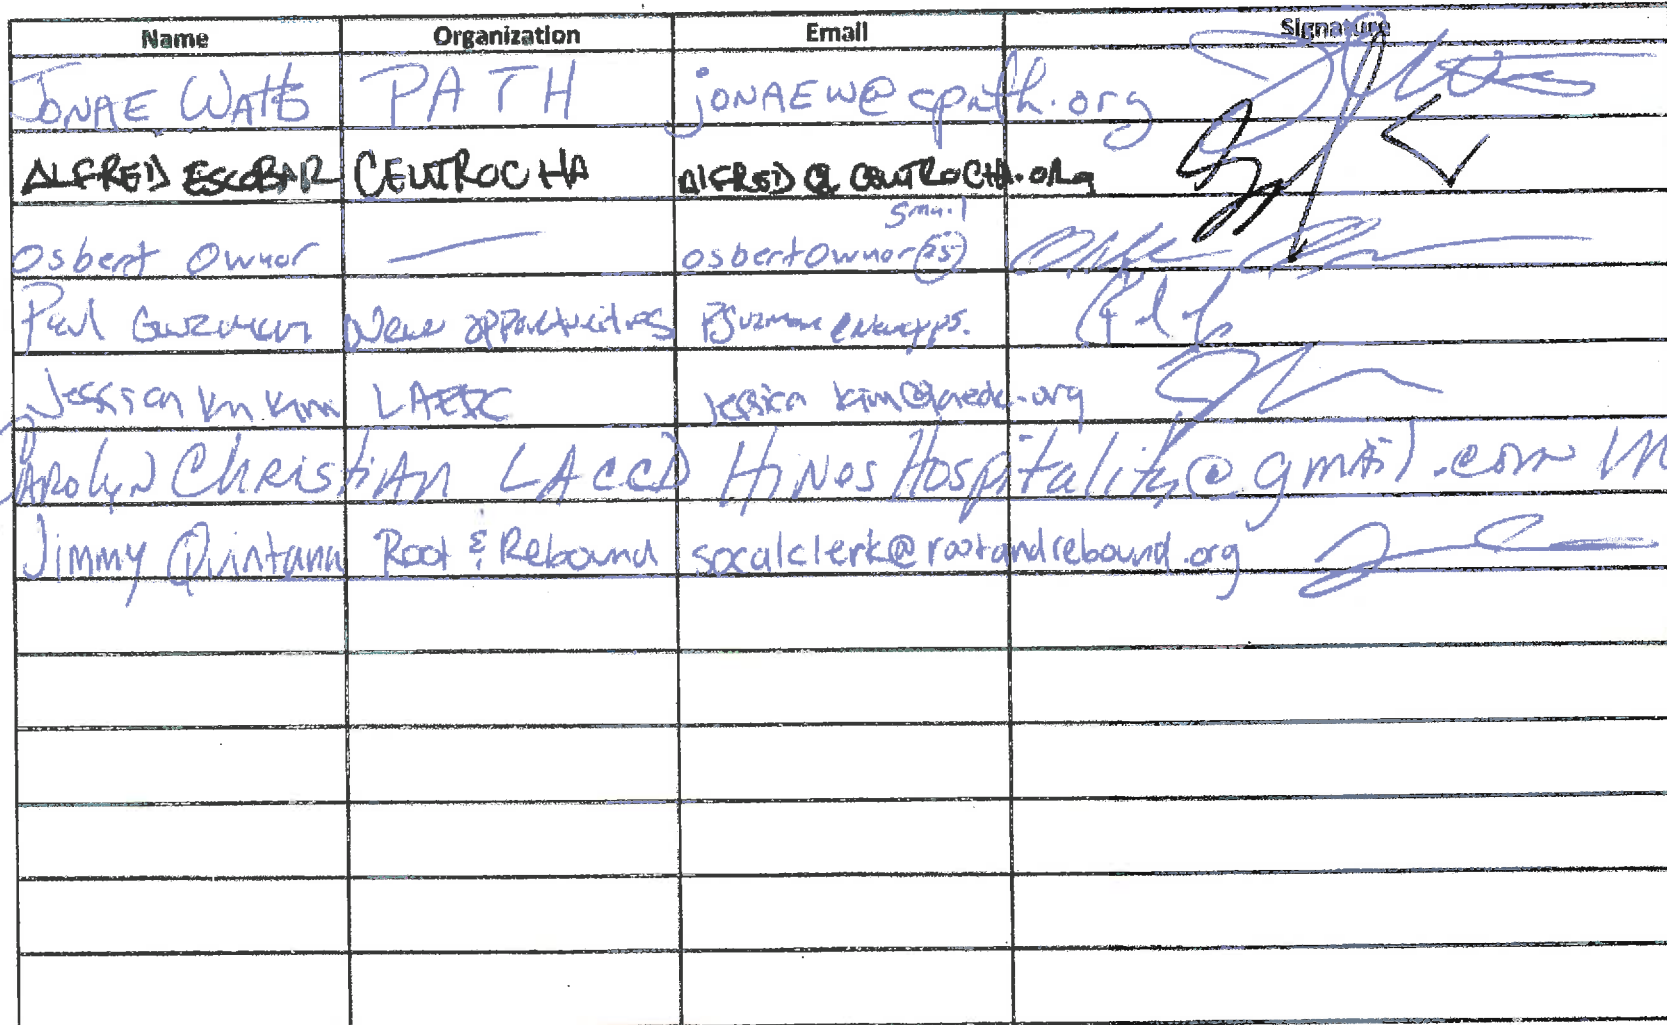 Name Organization Email Signature
JONAE WATTS PATH jONAEW@epath.org
ALFRED ESCOBAR CENTROCHA AlFRED@CENTROCHA.ORg
gmail
Osbert Owuor — osbertowuor(25)
Paul Guzman New opportunities
Jessica Kim LAEDC jessica kim@laedc.org
CAROLyN ChRistiAN LACCD HINesHospitality@gmail.com
Jimmy Quintana Root & Rebound socalclerk@rootandrebound.org